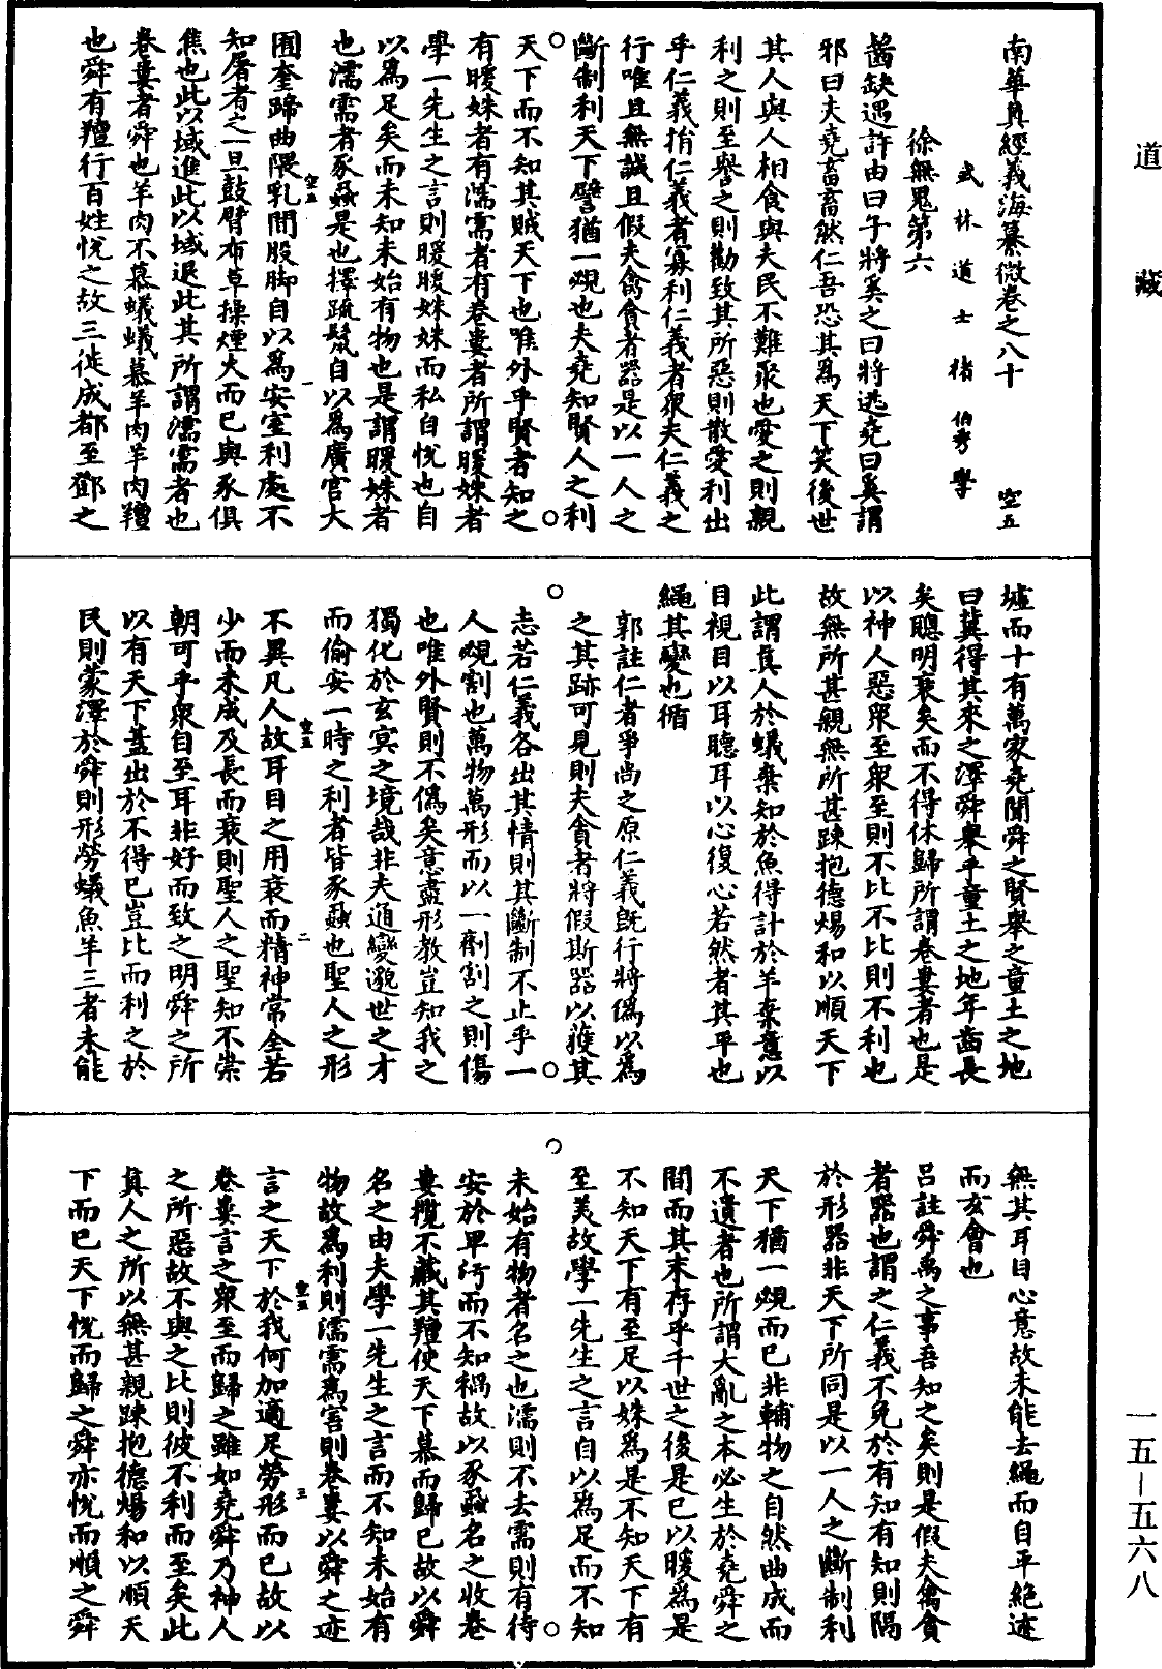 道藏
南華真經義海纂微卷之八十 空五
武林道士褚伯秀學
徐無鬼第六
齧缺遇許由曰子將奚之曰將逃堯曰奚謂
邪曰夫堯畜畜然仁吾恐其為天下笑後世
其人與人相食與夫民不難聚也愛之則親
利之則至譽之則勸致其所惡則散愛利出
乎仁義捐仁義者寡利仁義者眾夫仁義之
行唯且無誠且假夫禽貪者器是以一人之
斷制利天下譬猶一覕也夫堯知賢人之利
天下而不知其賊天下也唯外乎賢者知之
有暖姝者有濡需者有卷婁者所謂暖姝者
學一先生之言則暖暖姝姝而私自悅也自
以為足矣而未知未始有物也是謂暖姝者
也濡需者豕蝨是也擇疏鬣自以為廣宮大
囿奎蹄曲隈乳間股脚自以為安室利處不
知屠者之一旦鼓臂布草操煙火而已與豕俱
焦也此以域進此以域退此其所謂濡需者也
卷婁者舜也羊肉不慕蟻蟻慕羊肉羊肉羶
也舜有羶行百姓悅之故三徙成都至鄧之
墟而十有萬家堯聞舜之賢舉之童土之地
曰冀得其來之澤舜舉乎童土之地年齒長
矣聰明衰矣而不得休歸所謂卷婁者也是
以神人惡眾至眾至則不比不比則不利也
故無所甚親無所甚踈抱德煬和以順天下
此謂真人於蟻棄知於魚得計於羊棄意以
目視目以耳聽耳以心復心若然者其平也
繩其變也循
郭註仁者爭尚之原仁義既行將偽以為
之其跡可見則夫貪者將假斯器以獲其
志若仁義各出其情則其斷制不止乎一
人覕割也萬物萬形而以一劑割之則傷
也唯外賢則不偽矣意盡形教豈知我之
獨化於玄冥之境哉非夫通變邈世之才
而偷安一時之利者皆豕蝨也聖人之形
不異凡人故耳目之用衰而精神常全若
少而未成及長而衰則聖人之聖知不崇
朝可乎眾自至耳非好而致之明舜之所
以有天下蓋出於不得已豈比而利之於
民則蒙澤於舜則形勞蟻魚羊三者未能
無其耳目心意故未能去繩而自平絕迹
而玄會也
呂註舜禹之事吾知之矣則是假夫禽貪
者器也謂之仁義不免於有知有知則隔
於形器非天下所同是以一人之斷制利
天下猶一覕而已非輔物之自然曲成而
不遺者也所謂大亂之本必生於堯舜之
間而其末存乎千世之後是已以暖為是
不知天下有至足以姝為是不知天下有
至美故學一先生之言自以為足而不知
未始有物者名之也濡則不去需則有待
安於卑汙而不知禍故以豕蝨名之收卷
婁攬不藏其羶使天下慕而歸已故以舜
名之由夫學一先生之言而不知未始有
物故為利則濡需為害則卷婁以舜之迹
言之天下於我何加適足勞形而已故以
卷婁言之眾至而歸之雖如堯舜乃神人
之所惡故不與之比則彼不利而至矣此
真人之所以無甚親踈抱德煬和以順天
下而已天下悅而歸之舜亦悅而順之舜
空五 一
空五 二
空五 三
一五—五六八